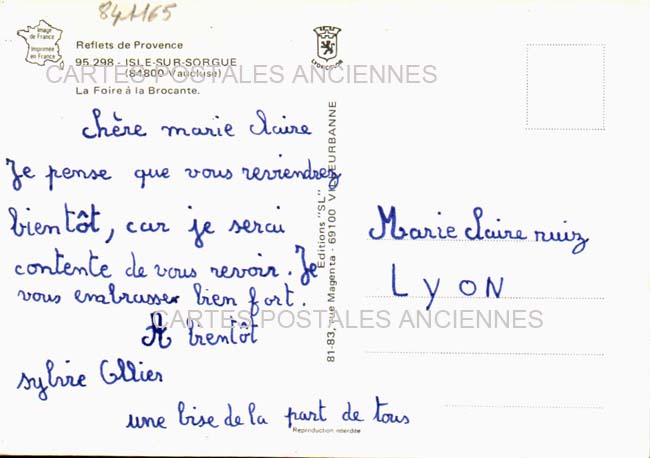 841165
Image
de France
Imprimée
en France
Reflets de Provence
95.298 - ISLE-SUR-SORGUE
(84800 Vaucluse)
CARTES POSTALES ANCIENNES
La Foire à la Brocante.
LYON COLOR
chère marie claire
Je pense que vous reviendrez
bientôt, car je serai
contente de vous revoir. Je
vous embrasser bien fort.
A bientôt
CARTES POSTALES ANCIENNES
sylvie Ollier
une bise de la part de tous
Reproduction interdite
Editions "SL"
81-83, rue Magenta - 69100 VILLEURBANNE
Marie claire ruiz
LYON